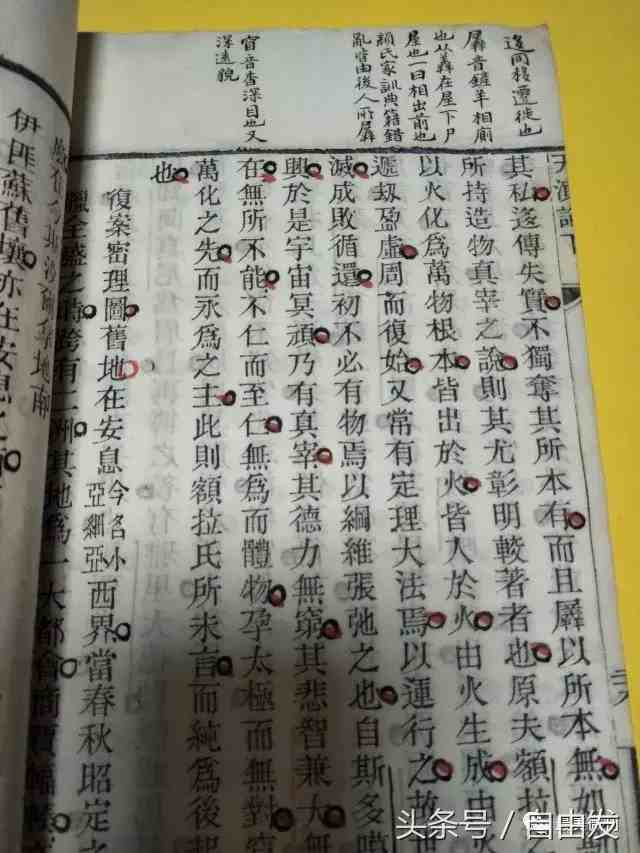 迻同移遷徙也
羼音鏟羊相廁
也从羴在屋下尸
屋也一曰相出前也
顔氏家訓典籍錯
亂皆由後人所羼
窅音杳深目也又
深遠貌
天演論下
其私迻傳失實不獨奪其所本有而且羼以所本無如
所持造物真宰之說則其尤彰明較著者也原夫額拉
以火化為萬物根本皆出於火皆入於火由火生成由
遞劫盈虛周而復始又常有定理大法焉以運行之故世
滅成敗循還初不必有物焉以綱維張弛之也自斯多噶
興於是宇宙冥頑乃有真宰其德力無窮其悲智兼大無
在無所不能不仁而至仁無為而體物孕太極而無對窅
萬化之先而永為之主此則額拉氏所未言而純為後起
也
復案密理圖舊地在安息今名小亞細亞西界當春秋昭定之
臘全盛之時跨有二洲其地為一大都會商賈輻
伊匪蘇舊壤亦在安息之
頭条号 / 自由发